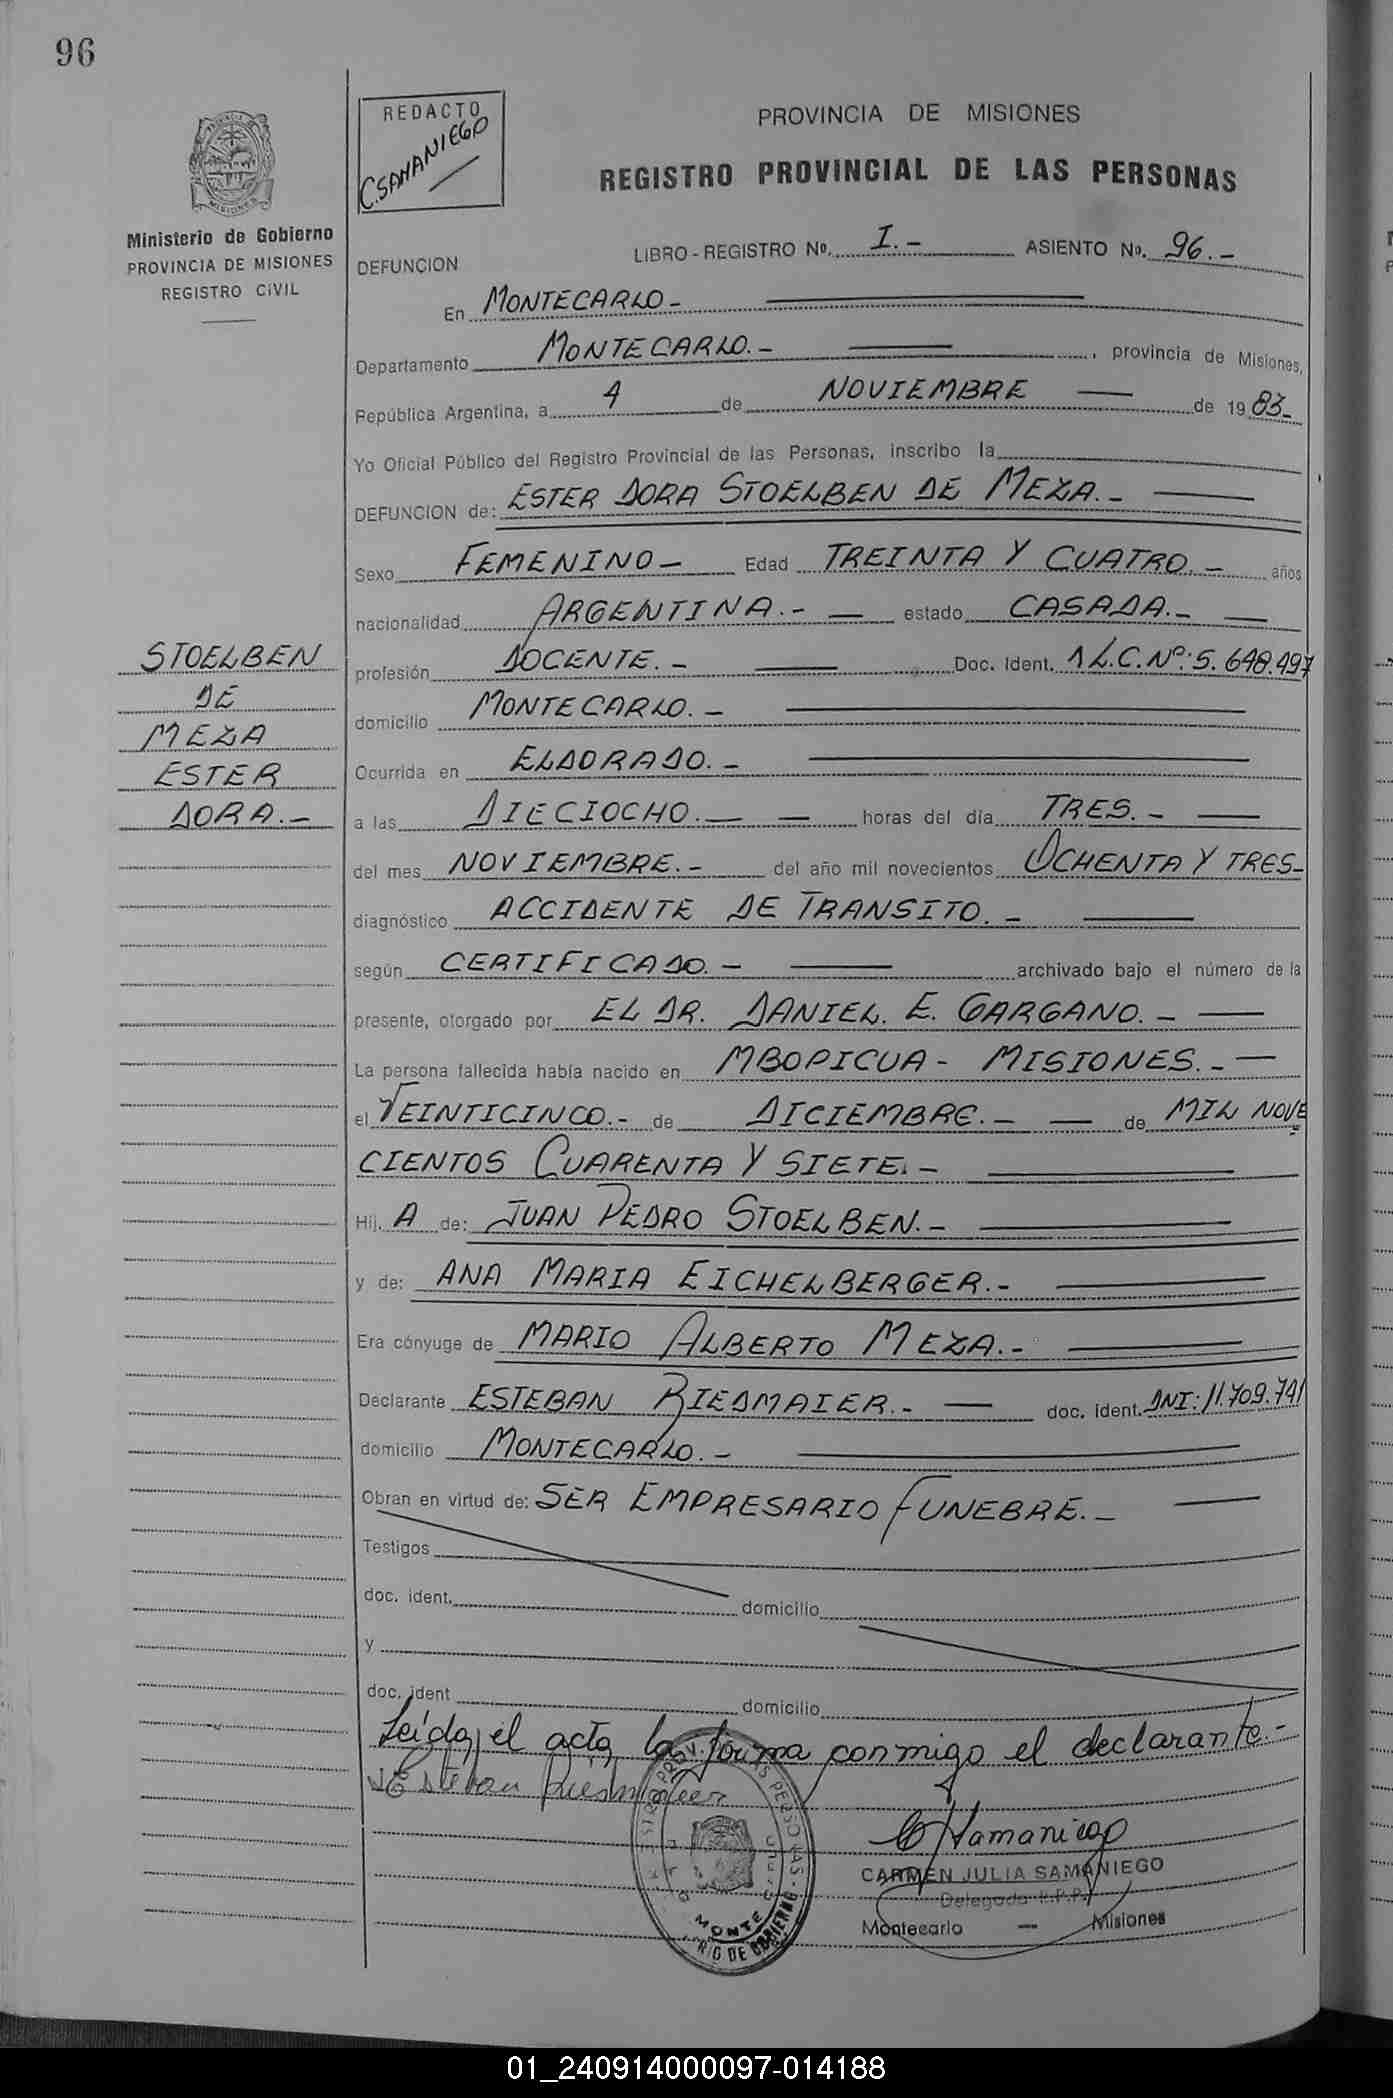 96
REDACTO
C. SAMANIEGO
PROVINCIA DE MISIONES
REGISTRO PROVINCIAL DE LAS PERSONAS
Ministerio de Gobierno
PROVINCIA DE MISIONES
REGISTRO CIVIL
DEFUNCION LIBRO - REGISTRO No. I.- ASIENTO No. 96.-
En MONTECARLO-
Departamento MONTECARLO.- , provincia de Misiones,
República Argentina, a 4 de NOVIEMBRE de 19 83-
Yo Oficial Público del Registro Provincial de las Personas, inscribo la
DEFUNCION de: ESTER DORA STOELBEN DE MEZA.-
Sexo FEMENINO- Edad TREINTA Y CUATRO.- años
nacionalidad ARGENTINA.- estado CASADA.-
STOELBEN
DE
MEZA
ESTER
DORA.-
profesión DOCENTE.- Doc. Ident. L.C.Nº: 5.648.497
domicilio MONTECARLO.-
Ocurrida en ELDORADO.-
a las DIECIOCHO.- horas del día TRES.-
del mes NOVIEMBRE.- del año mil novecientos OCHENTA Y TRES-
diagnóstico ACCIDENTE DE TRANSITO.-
según CERTIFICADO.- archivado bajo el número de la
presente, otorgado por EL DR. DANIEL. E. GARGANO.-
La persona fallecida había nacido en MBOPICUA- MISIONES.-
el VEINTICINCO.- de DICIEMBRE.- de MIL NOVE
CIENTOS CUARENTA Y SIETE.-
Hij. A de: JUAN PEDRO STOELBEN.-
y de: ANA MARIA EICHELBERGER.-
Era cónyuge de MARIO ALBERTO MEZA.-
Declarante ESTEBAN RIEDMAIER.- doc. ident. DNI: 11.709.741
domicilio MONTECARLO.-
Obran en virtud de: SER EMPRESARIO FUNEBRE.-
Testigos
doc. ident. domicilio
y
doc. ident domicilio
Leida el acta la firma conmigo el declarante.-
Esteban Riedmaier
C Samaniego
CARMEN JULIA SAMANIEGO
Delegada R.P.P.
Montecarlo - Misiones
MONTE
RIO DE GOBIERNO
01_240914000097-014188